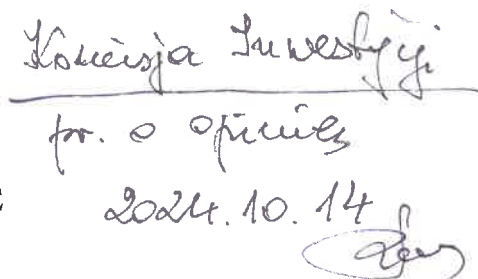 Komisja Inwestycji
pr. o opinię
2024.10.14